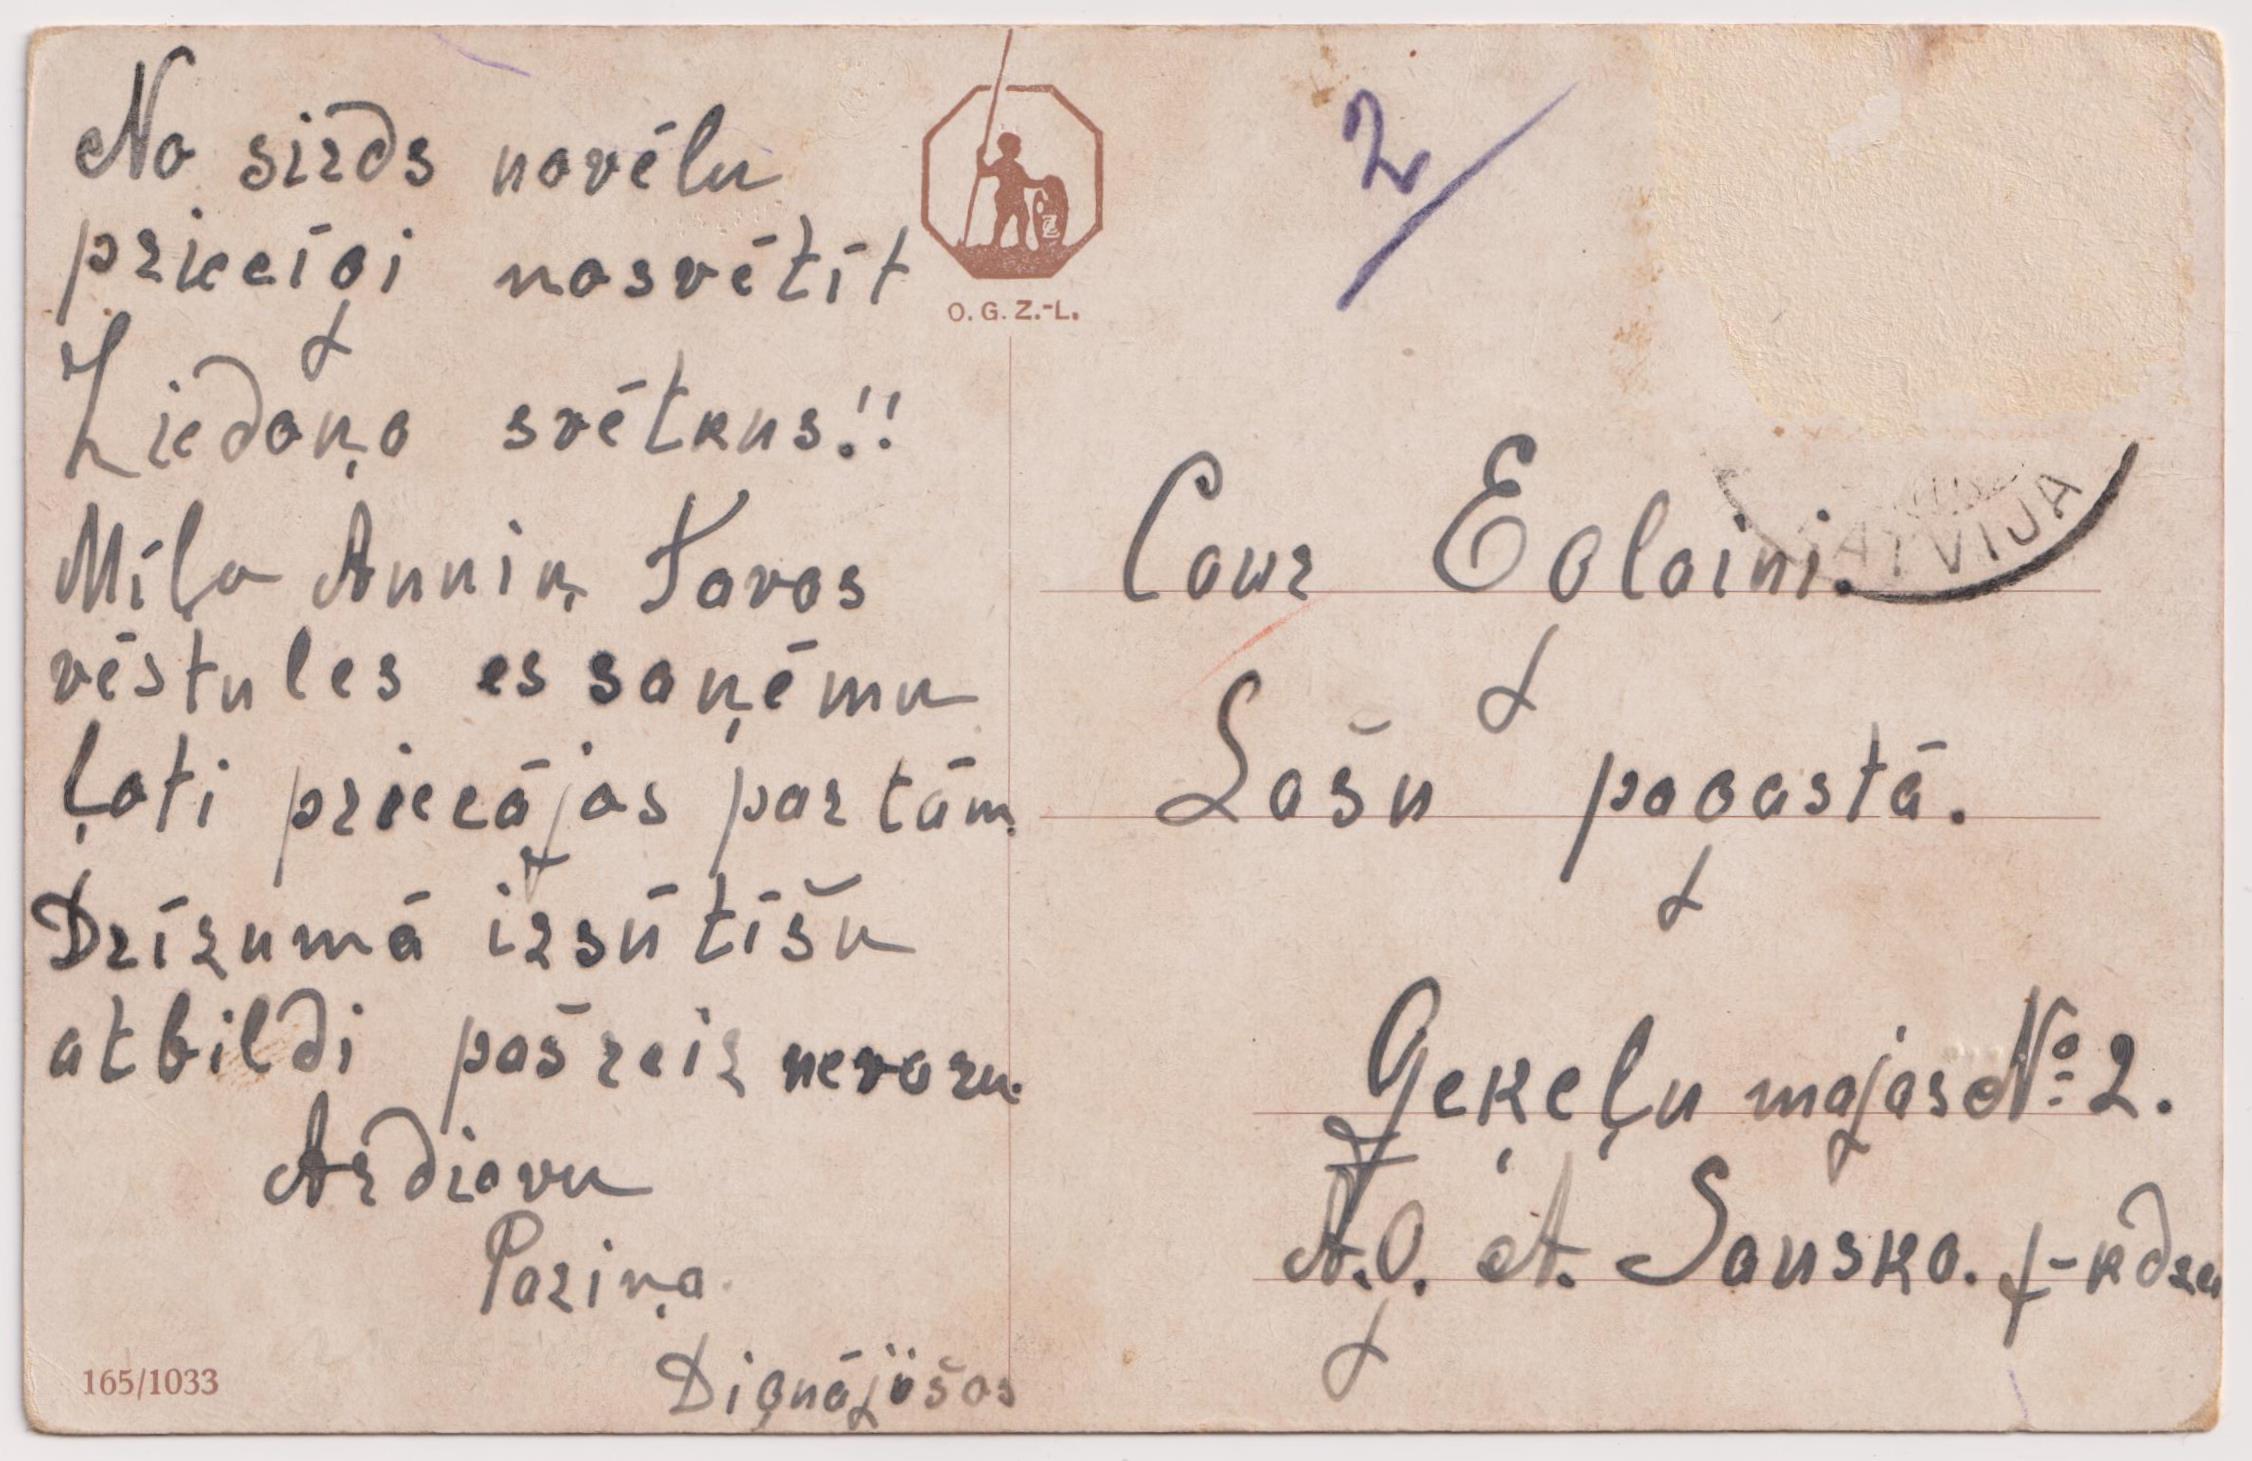 No sirds novēlu
priecīgi nosvētīt
Ziedoņo svētkus!!
Mīļa Anniņ Tavas
vēstules es saņēmu
Ļoti priecājos par tām.
Drīzumā izsūtīšu
atbildi pašreiz nevaru.
Ardievu
Paziņa.
165/1033
O. G. Z.-L.
2
LATVIJA
Caur Eglaini.
Lašu pagastā.
Ģeķeļu majas № 2.
A. Sausko.